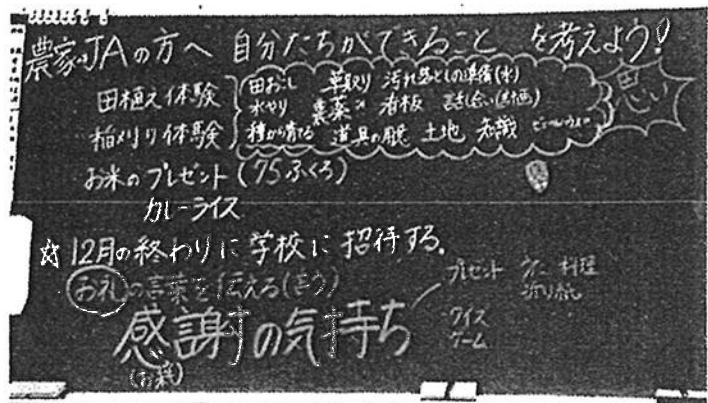 農家・JAの方へ 自分たちができること を考えよう!
田植え体験
稲刈り体験
田おこし 草取り 汚れ落としの準備(水)
水やり 農薬 看板 話し合い(計画)
種から育てる 道具の用意 土地 知識
思い
お米のプレゼント(75ふくろ)
カレーライス
☆12月の終わりに学校に招待する。
お礼の言葉を伝える(言う)
感謝の気持ち
(お米)
プレゼント 料理
折り紙
クイズ
ゲーム